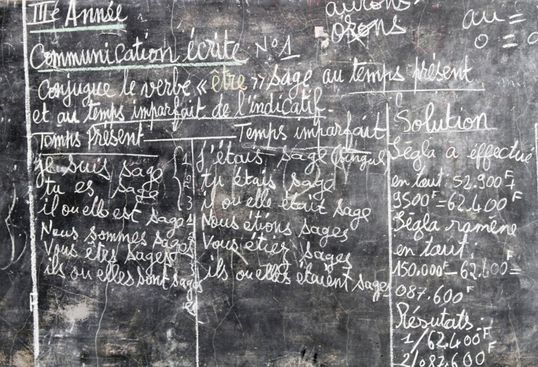 IIIè Année
Communication écrite N°1
Conjugue le verbe « être » sage au temps présent
et au temps imparfait de l'indicatif.
Temps Présent
je suis sage
tu es sage
il ou elle est sage
Nous sommes sages
Vous êtes sages
ils ou elles sont sages
Temps imparfait
J'étais sage (singul
tu étais sage
il ou elle était sage
Nous étions sages
Vous étiez sages
ils ou elles étaient sages
aurons
orons
au =
o = o
Solution
Ségla a effectué
en tout: 52.900F+
9500F=62.400F
Ségla ramène
en tout
150.000F-62.400=
087.600F
Résutats:
1/62.400F
2/087.600F